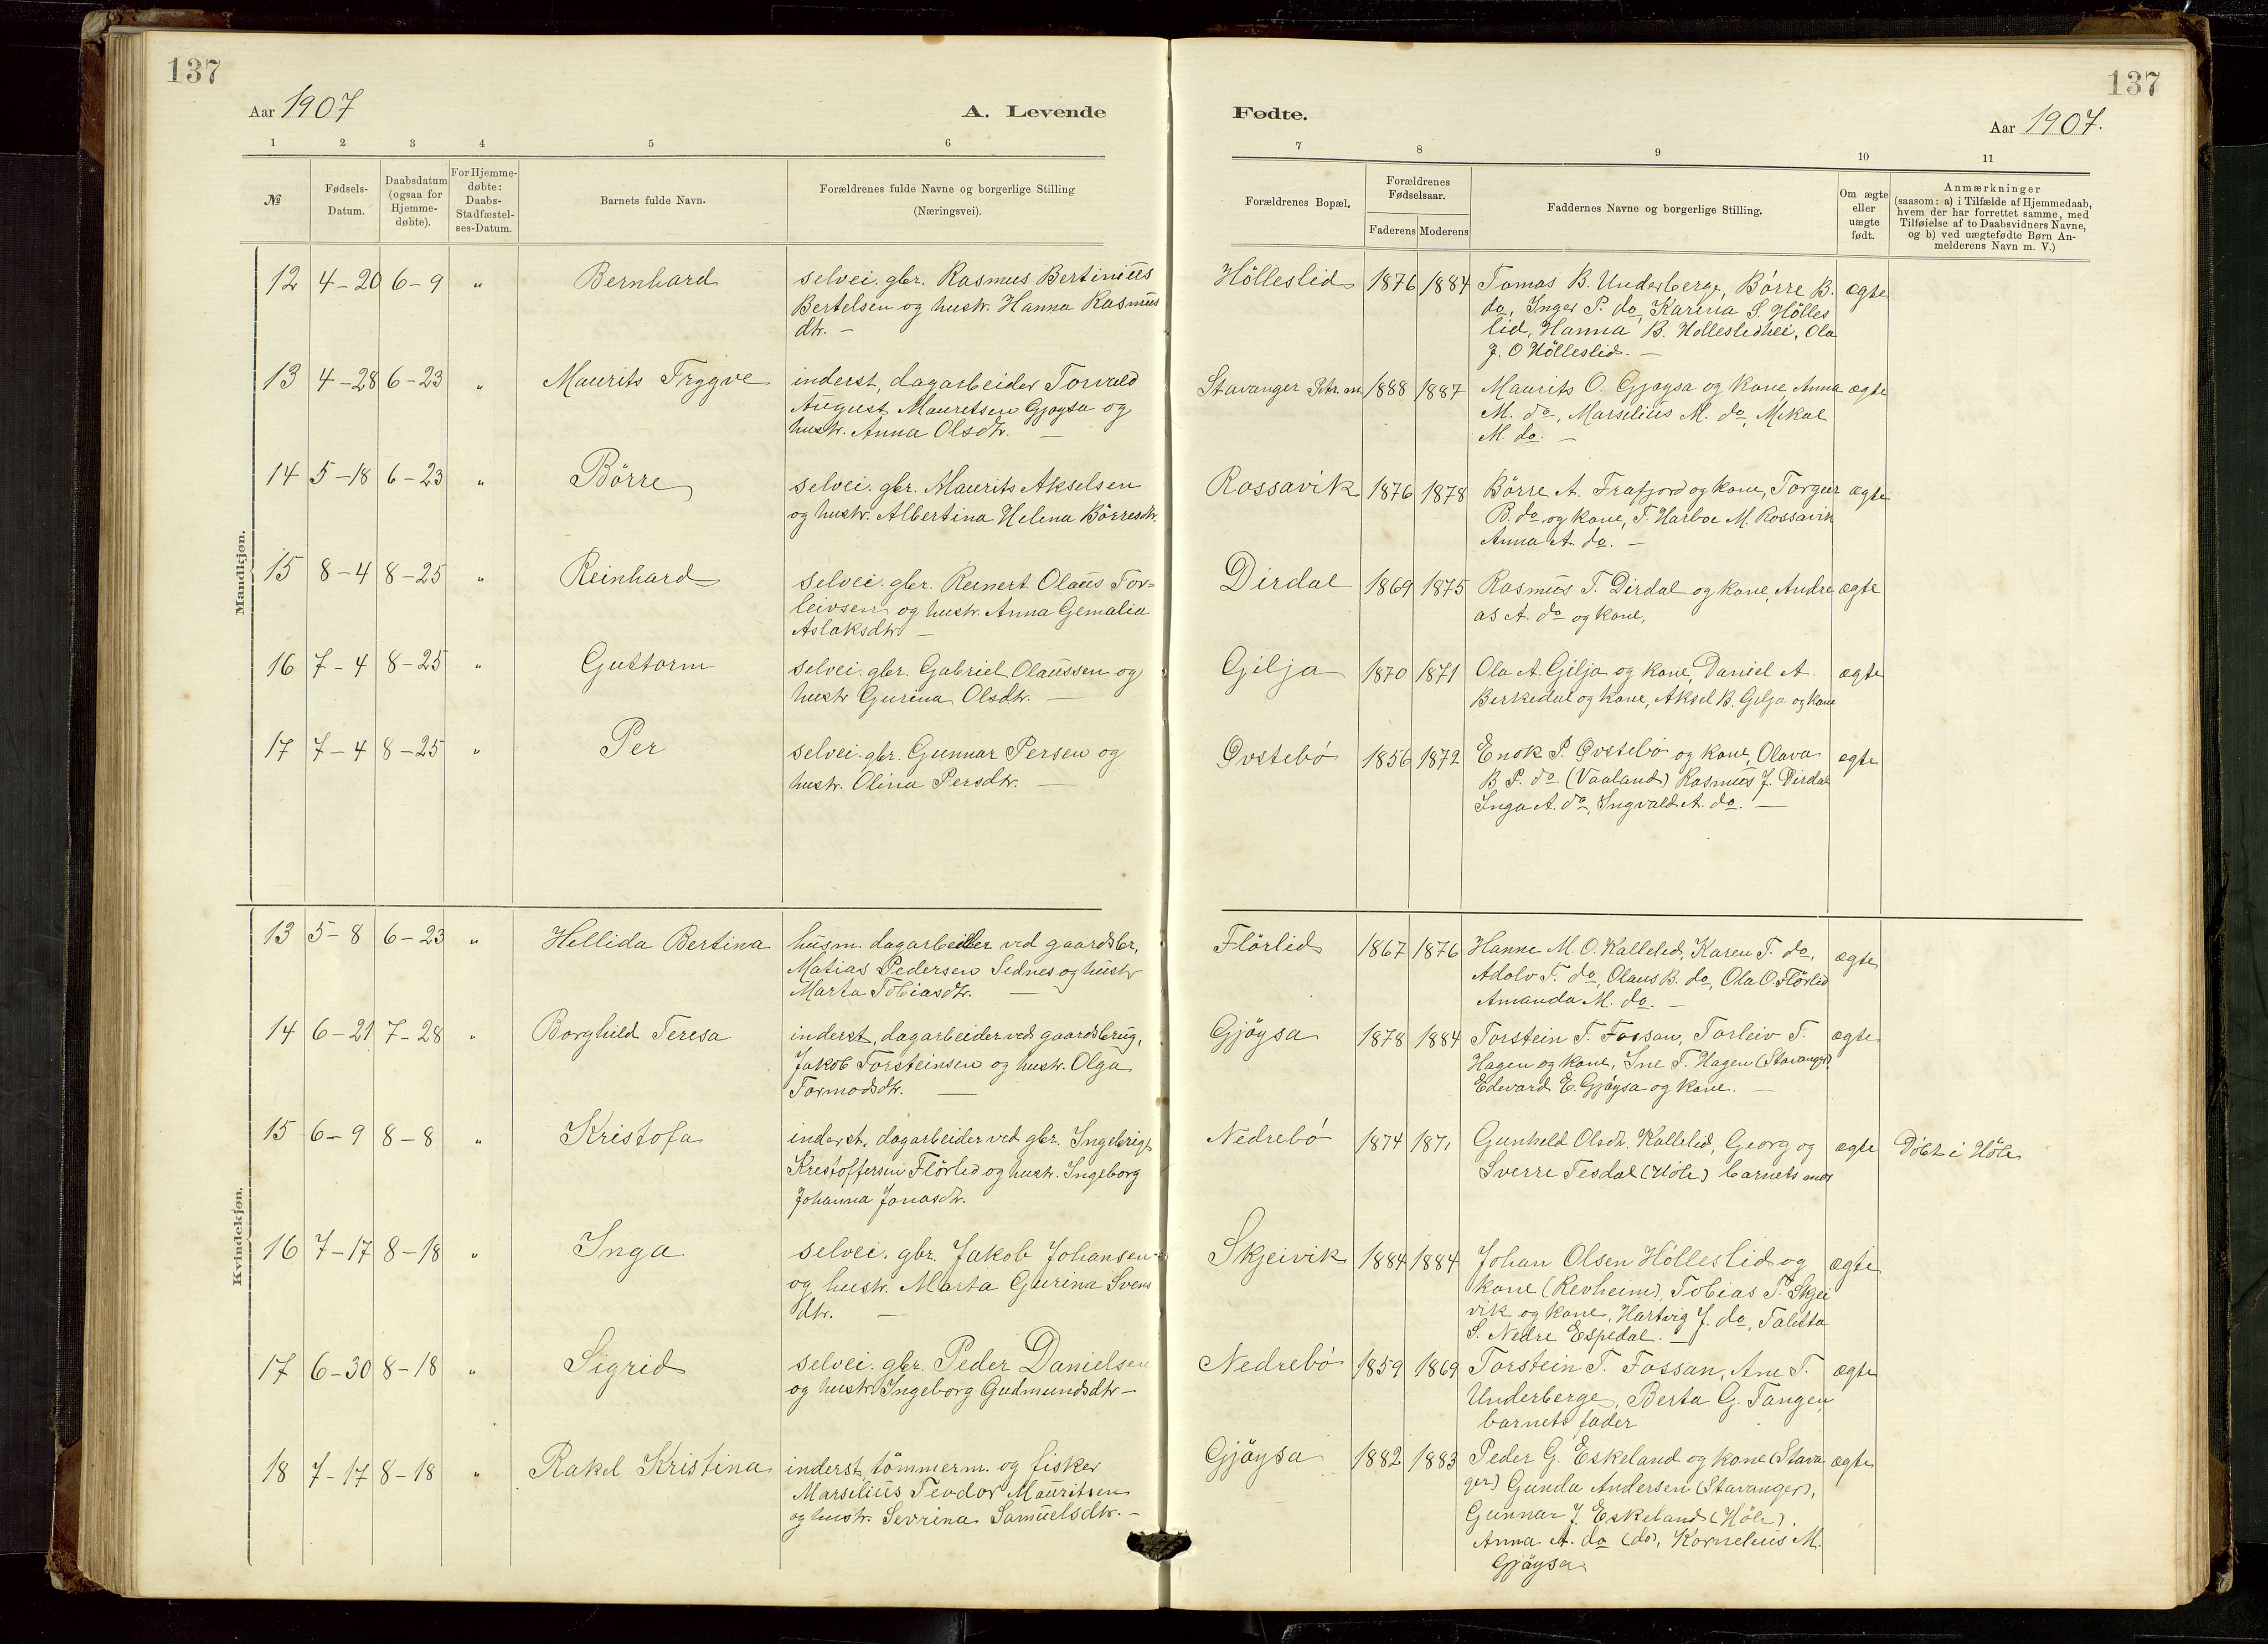 137
Aar 1907
A. Levende
1 2 3 4 5 6
№ Fødsels-Datum. Daabsdatum (ogsaa for Hjemme-døbte). For Hjemme-døbte: Daabs-Stadfæstel-ses-Datum. Barnets fulde Navn. Forældrenes fulde Navne og borgerlige Stilling (Næringsvei).
Mandkjøn.
12 4-20 6-9 " Bernhard selvei. gbr. Rasmus Bertinius
Bertelsen og hustr. Hanna Rasmus
dtr. —
13 4-28 6-23 " Maurits Tryggve inderst, dagarbeider Torvald
August Mauritsen Gjøysa og
hustr. Anna Olsdtr. —
14 5-18 6-23 " Börre selvei. gbr. Maurits Akselsen
og hustr. Albertina Helena Börresdtr.
15 8-4 8-25 " Reinhard selvei. gbr. Reinert Olaus Tor=
leivsen og hustr. Anna Gemalia
Aslaksdtr —
16 7-4 8-25 " Guttorm selvei. gbr. Gabriel Olaussen og
hustr Gurina Olsdtr. —
17 7-4 8-25 " Per selvei. gbr. Gunnar Persen og
hustr. Olina Persdtr. —
Kvindekjøn.
13 5-8 6-23 " Hellida Bertina husm. dagarbeider ved gaardsbr,
Matias Pedersen Sednes og hustr
Marta Tobiasdtr. —
14 6-21 7-28 " Borghild Teresa inderst, dagarbeider ved gaardsbrug,
Jakob Torsteinsen og hustr. Olga
Tormodsdtr. —
15 6-9 8-8 " Kristofa inderst, dagarbeider ved gbr. Ingebrigt
Kristoffersen Flörlid og hustr. Ingeborg
Johanna Jonasdtr.
16 7-17 8-18 " Inga selvei. gbr. Jakob Johansen
og hustr. Marta Gurina Svens
dtr. —
17 6-30 8-18 " Sigrid selvei. gbr. Peder Danielsen
og hustr Ingeborg Gudmundsdtr —
18 7-17 8-18 " Rakel Kristina inderst, tömmerm. og fisker
Marselius Teodor Mauritsen
og hustr. Sevrina Samuelsdtr. —
137
Fødte.
Aar 1907.
7 8 9 10 11
Forældrenes Bopæl. Forældrenes Fødselsaar. Faderens Moderens Faddernes Navne og borgerlige Stilling. Om ægte eller uægte født. Anmærkninger
(saasom: a) i Tilfælde af Hjemmedaab,
hvem der har forrettet samme, med
Tilføielse af to Daabsvidners Navne,
og b) ved uægtefødte Børn An-
melderens Navn m. V.)
Hölleslid 1876 1884 Tomas B. Underberge, Börre B. ægte
do, Inger P. do, Karina S. Hölles
lid, Hanna B. Hölleslidhei, Ola
J. O Hölleslid. —
Stavanger 1888 1887 Maurits O. Gjøysa og kone, Anna ægte
M. do, Marselius M. do, Mikal
M. do. —
Rossavik 1876 1878 Börre A. Frafjord og kone, Torger ægte
B. do og kone, T. Harboe M. Rossavik
Anna A. do. —
Dirdal 1869 1875 Rasmus T. Dirdal og kone, Andre ægte
as A. do og kone,
Gilja 1870 1871 Ola A. Gilja og kone, Daniel A. ægte
Berkedal og kone, Aksel B. Gilja og kone
Øvstebö 1856 1872 Enok P. Øvstebö og kone, Olava ægte
B P. do (Vaaland) Rasmus J. Dirdal
Inga A. do, Ingvald A. do. —
Flörlid 1867 1876 Hanne M. O. Kallelid, Karen T. do, ægte
Adolv T. do, Olaus B. do, Ola O. Flörlid
Amanda M. do. —
Gjöysa 1878 1884 Torstein T. Fossan, Torleiv T. ægte
Hagen og kone, Ine T. Hagen (Stavanger),
Edvard E. Gjöysa og kone. —
Nedrebö 1874 1871 Gunhild Olsdr. Kallelid, Georg og ægte Döbt i Höle
Sverre Tesdal (Höle) barnets mor
Skjeivik 1884 1884 Johan Olsen Hölleslid og ægte
kone (Revheim), Tobias T. Skjei
vik og kone, Hartvig J. do, Taletta
S. Nedre Espedal. —
Nedrebö 1859 1869 Torstein T. Fossan, Ane T. ægte
Underberge, Berta G. Tangen
barnets fader
Gjöysa 1882 1883 Peder G. Eskeland og kone (Stava ægte
ger) Gunda Andersen (Stavanger),
Gunnar J. Eskeland (Höle).
Anna A. do (do), Kornelius M.
Gjöysa